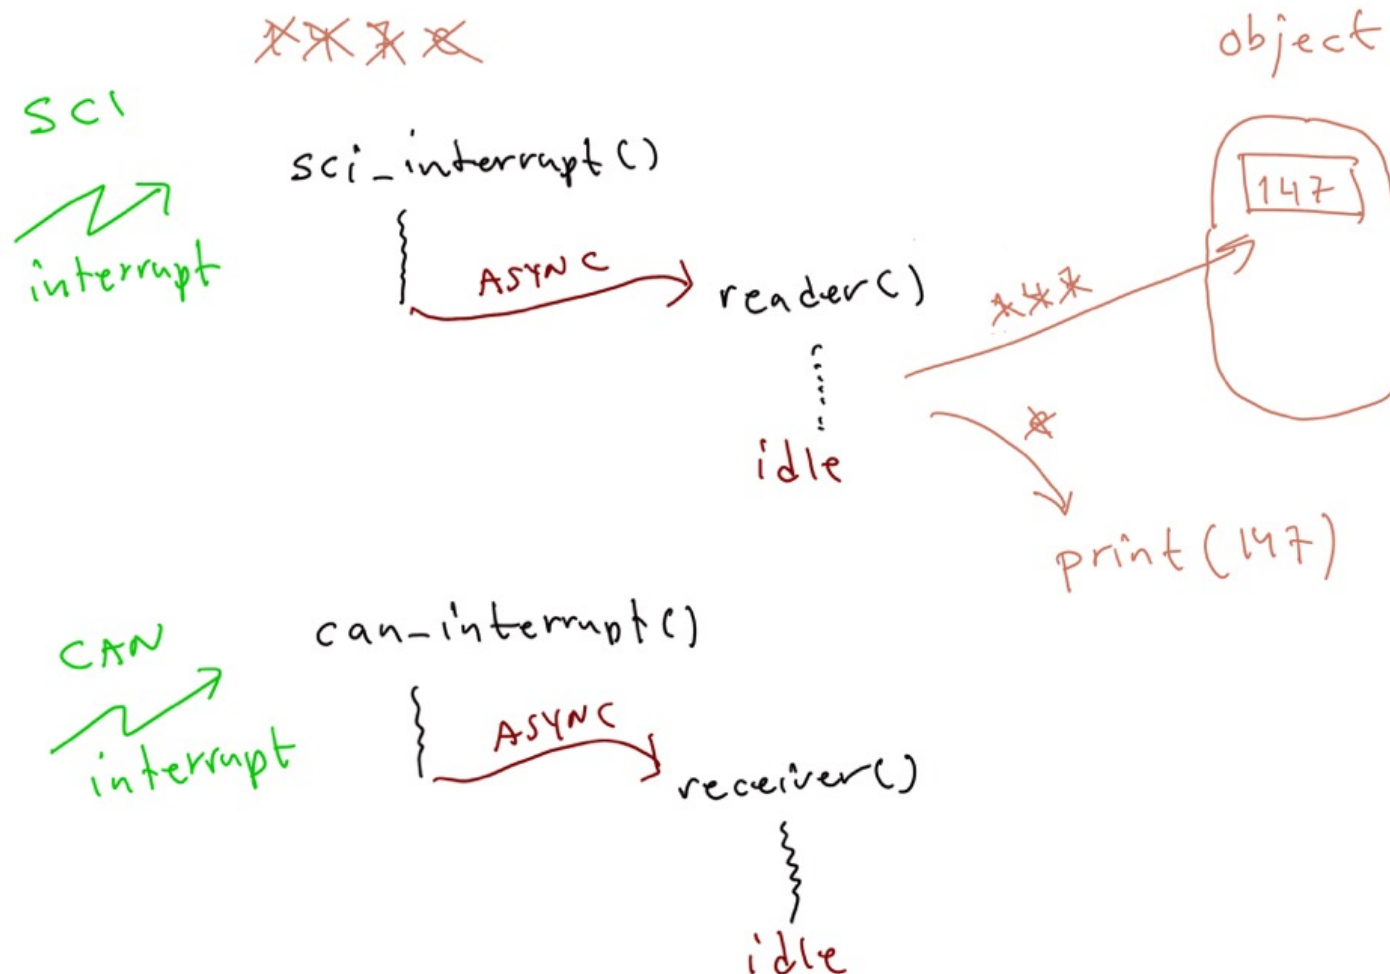 object
SCI
sci_interrupt()
147
interrupt
ASYNC
reader()
147
idle
print(147)
CAN
can_interrupt()
interrupt
ASYNC
receiver()
idle